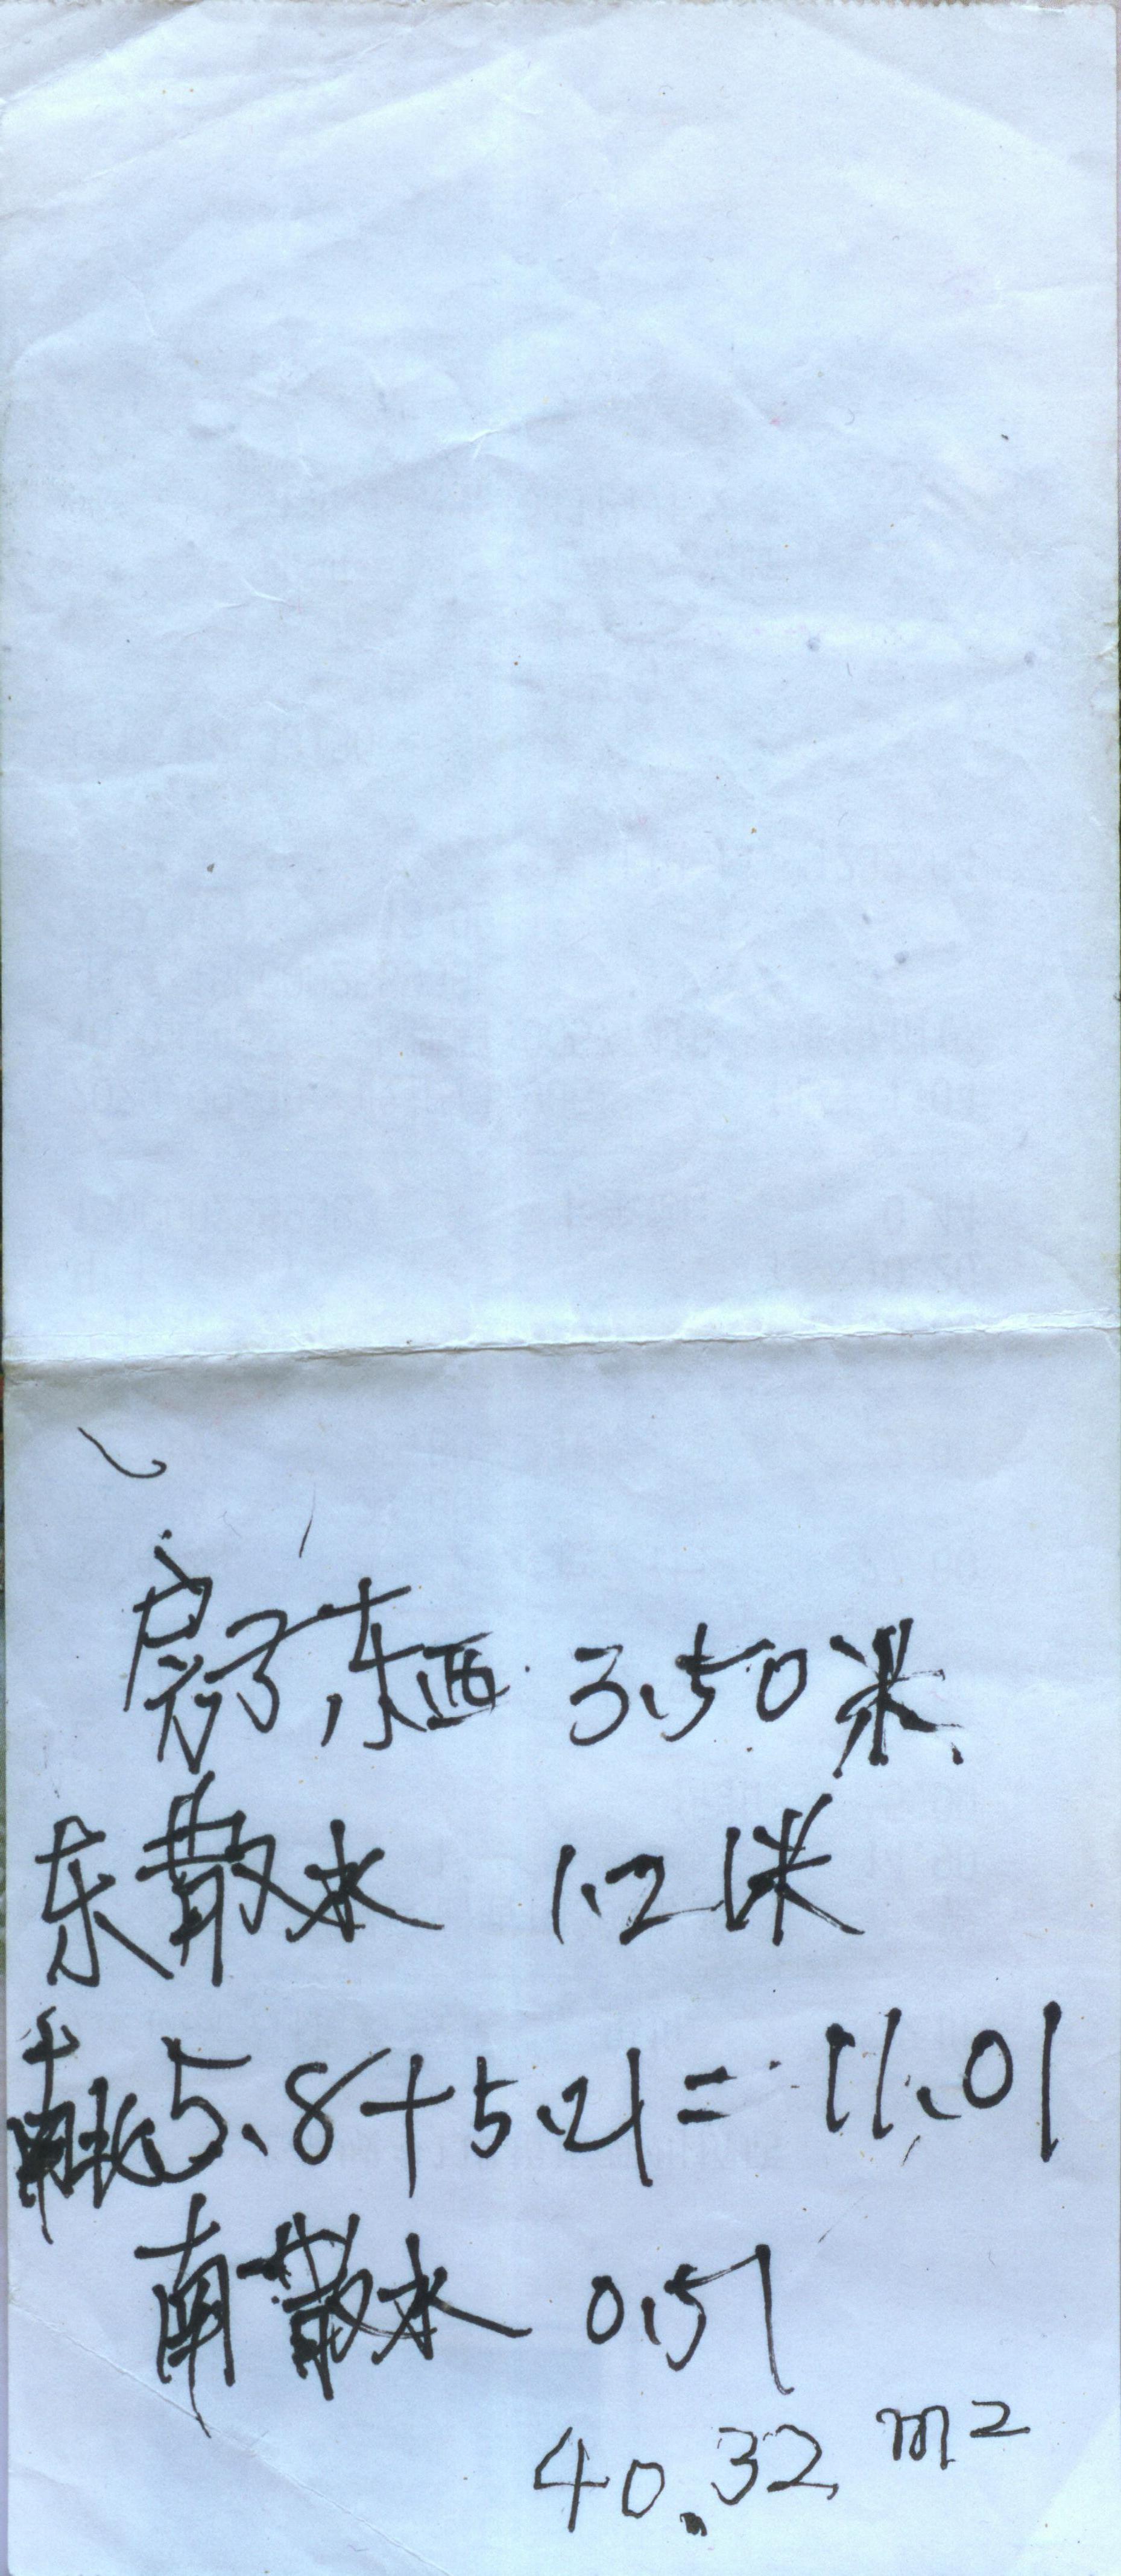 房子东西 3.50米
东散水 1.21米
南北5.8+5.21=11.01
南散水 0.51
40.32 m²